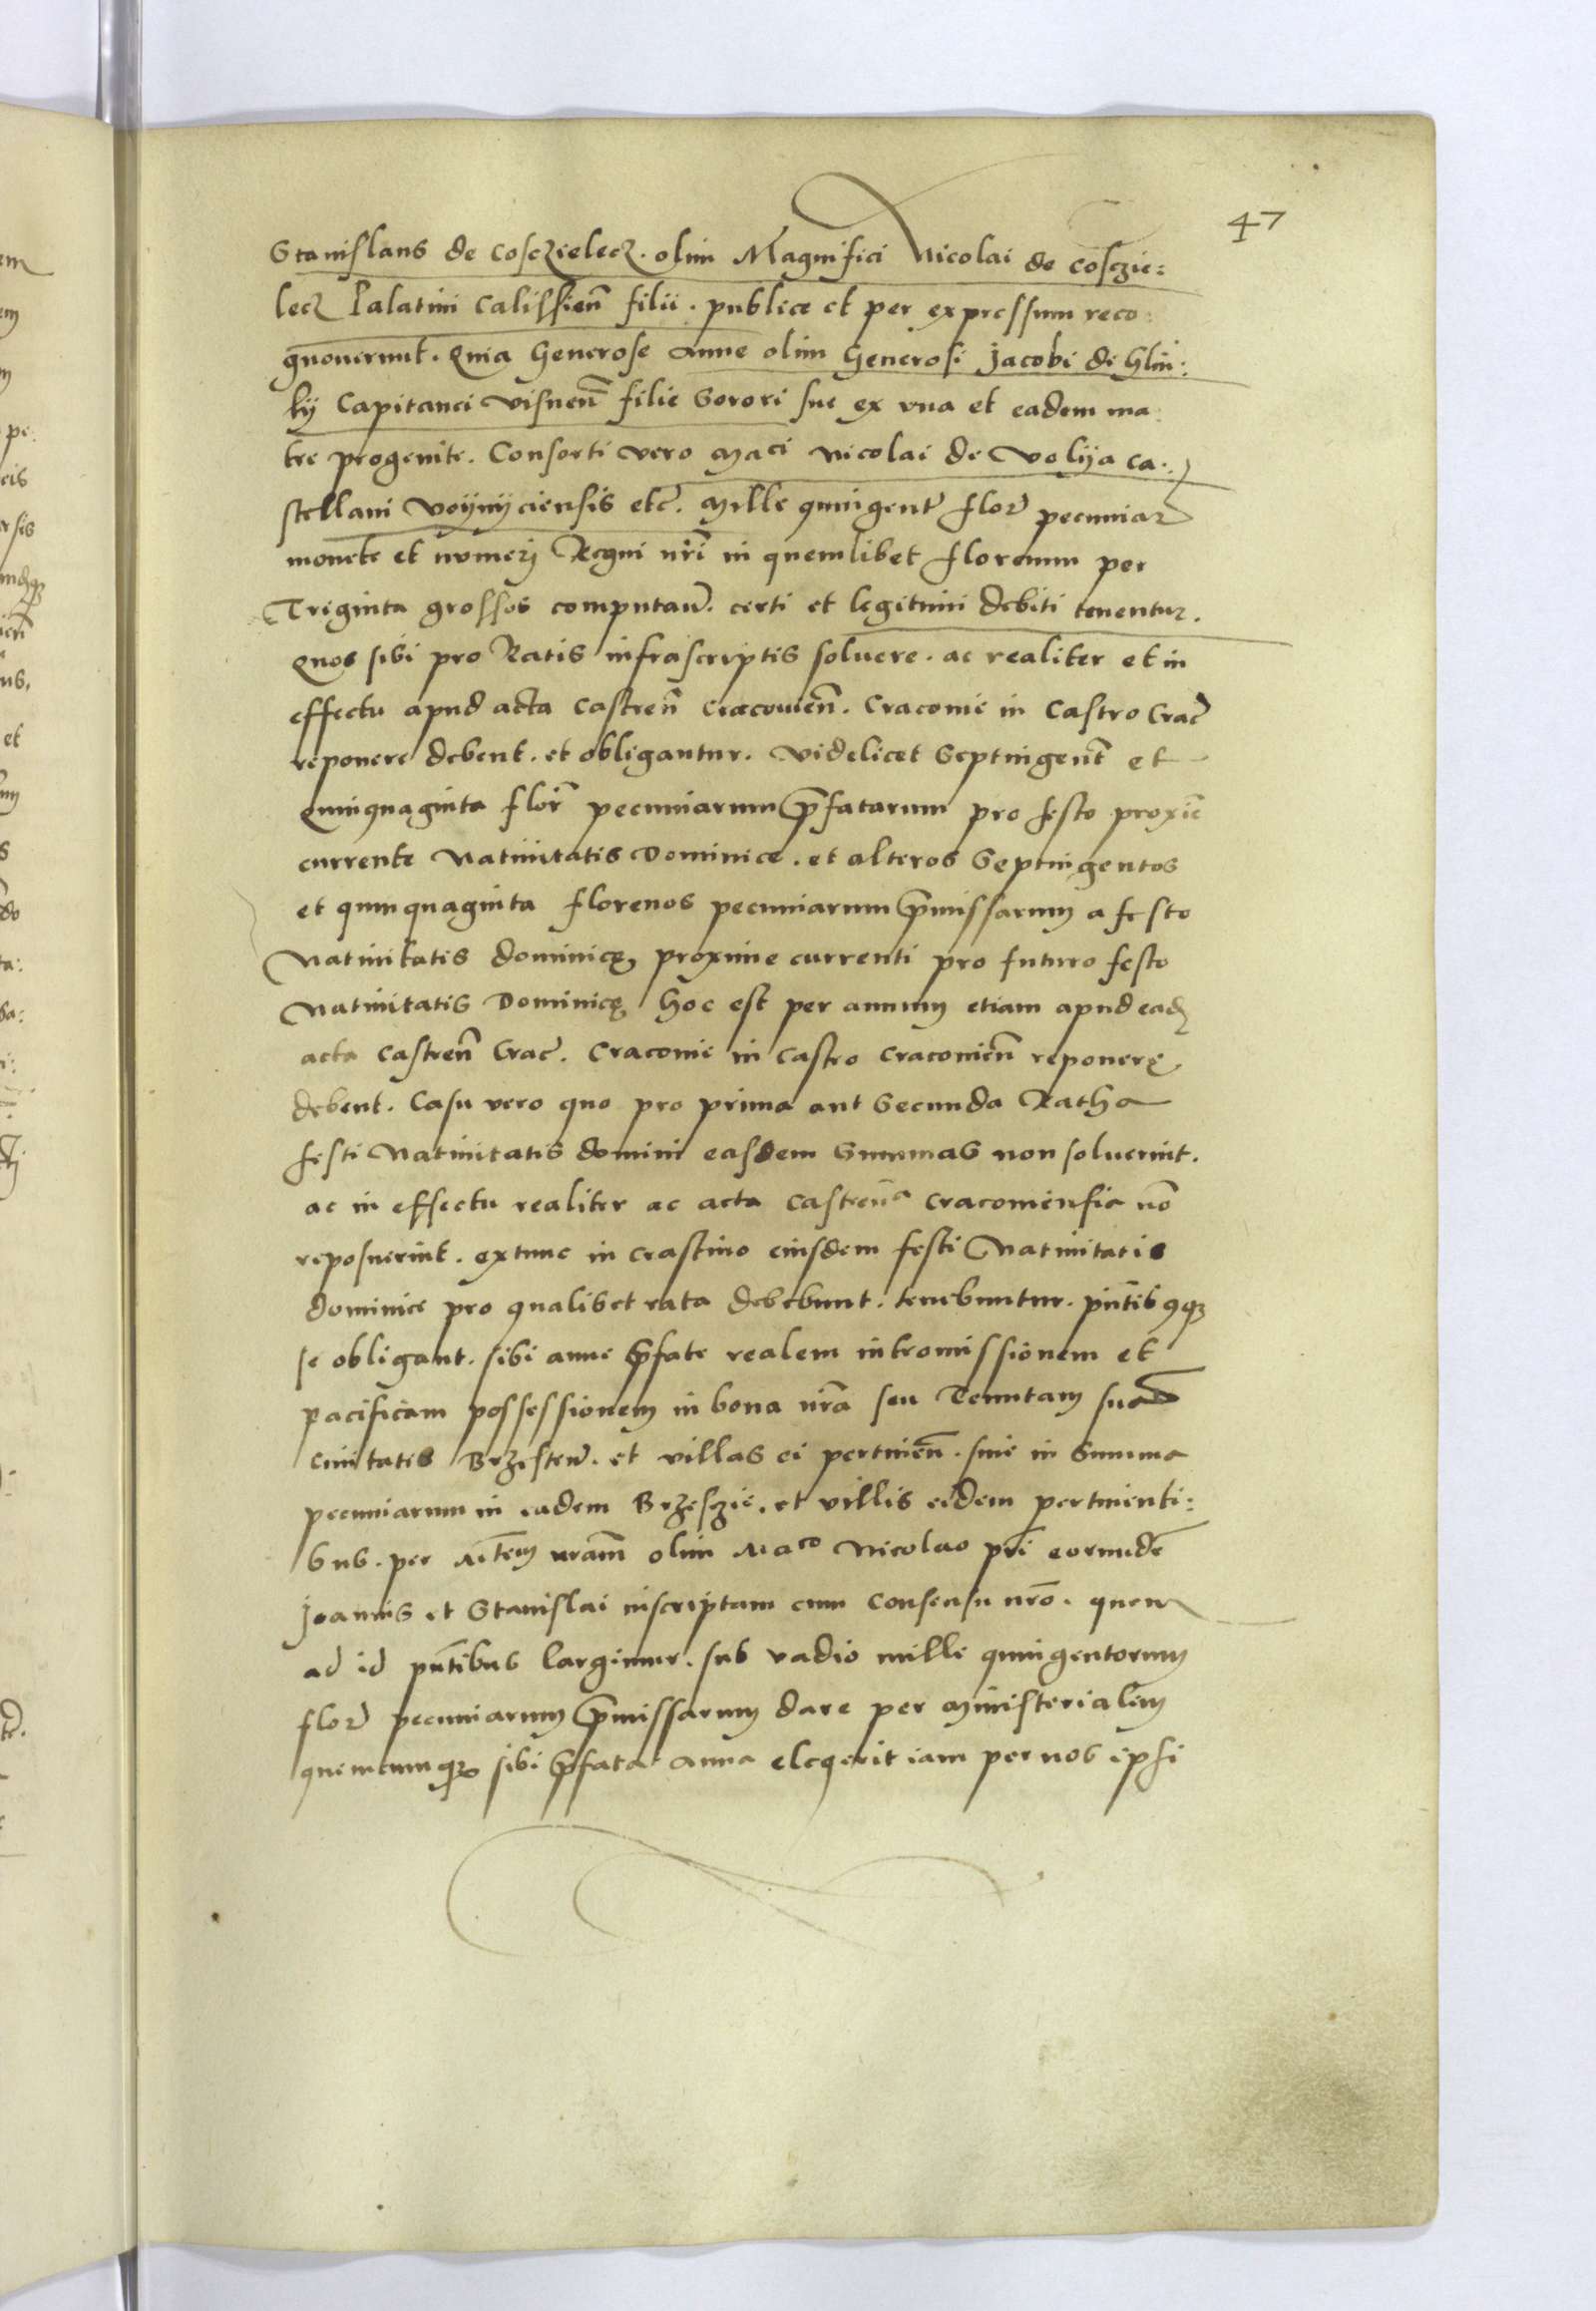 47
Stanislaus de Cosczielecz. olim Magnifici Nicolai de Cosczie:
lecz Palatini Calissień filii. publice et per expressum reco:
gnouerunt. Quia Generose Anne olim Generosi Jacobi de Glin:
ky Capitanei Visneñ filie Sorori sue ex vna et eadem ma:
tre progenite. Consorti vero Maci Nicolai de Volya Ca:
stellani Voyniciensis etc. Mille quingent flor pecuniar
monete et numeri Regni nri in quemlibet florenum per
Triginta grossos computañ. certi et legitimi debiti tenentur.
Quos sibi pro Ratis infrascriptis soluere. ac realiter et in
effectu apud acta Castreñ Cracouień. Cracouie in Castro Crac
reponere debent. et obligantur. Videlicet Septingent et
Quinquaginta flor pecuniarum pfatarum pro festo proxie
currente Natiuitatis Dominice. et alteros Septingentos
et quinquaginta florenos pecuniarum pmissarum a festo
Natiuitatis dominicę proxime currenti pro futuro festo
Natiuitatis Dominicę hoc est per annum etiam apud ead
acta Castreñ Crac. Cracouie in Castro Cracouień reponerę
debent. Casu vero quo pro prima aut Secunda Ratha
festi Natiuitatis domini easdem Summas non soluerint.
ac in effectu realiter ac acta Castreña Cracouiensia nō
reposuerint. extunc in crastino eiusdem festi Natiuitatis
dominice pro qualibet rata debebunt. tenebuntur. pntibusque
se obligant. sibi Anne pfate realem intromissionem et
pacificam possessionem in bona nra seu Tenutam suam
Ciuitatis Brzesteñ. et villas ei pertineñ. siue in Summa
pecuniarum in eadem Brzeszie. et villis eidem pertinenti:
bus. per Mtem nram olim Maco Nicolao pri eorundē
Joannis et Stanislai inscriptam cum Consensu nro. quem
ad id pntibus largimur. sub vadio mille quingentorum
flor pecuniarum pmissarum dare per Ministerialem
quemcumque sibi pfata Anna elegerit iam per nos ipsi